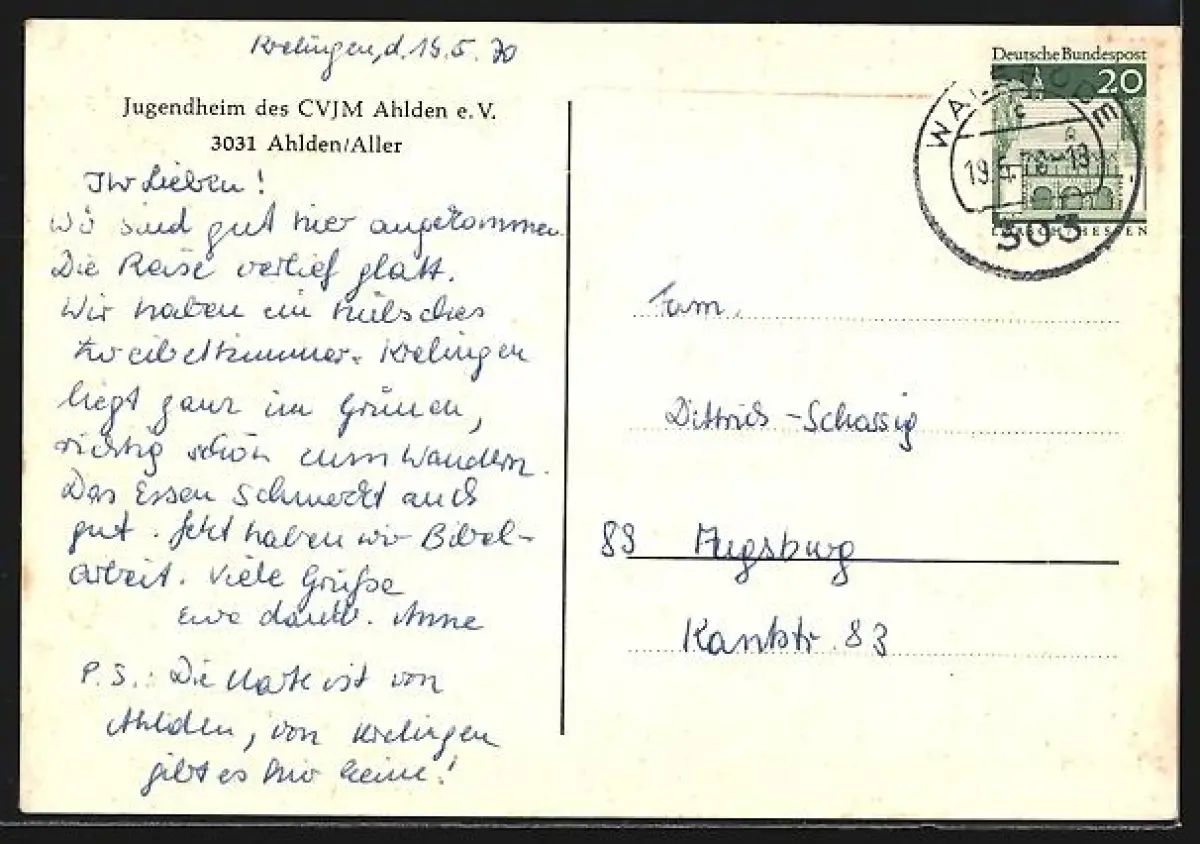 Krelingen, d. 19.5.70
Jugendheim des CVJM Ahlden e. V.
3031 Ahlden/Aller
Ihr Lieben!
Wir sind gut hier angekommen.
Die Reise verlief glatt.
Wir haben ein hübsches
Zweibettzimmer. Krelingen
liegt ganz im Grünen,
richtig schön zum Wandern.
Das Essen schmeckt auch
gut. Jetzt haben wir Bibel-
arbeit. Viele Grüße
Eure Anne
P.S.: Die Karte ist von
Ahlden, von Krelingen
gibt es hier keine!
Deutsche Bundespost
20
LORSCH/HESSEN
WALSRODE
c
19.5.70-19
303
Fam.
Dittrich-Schassig
89 Augsburg
Kantstr. 83